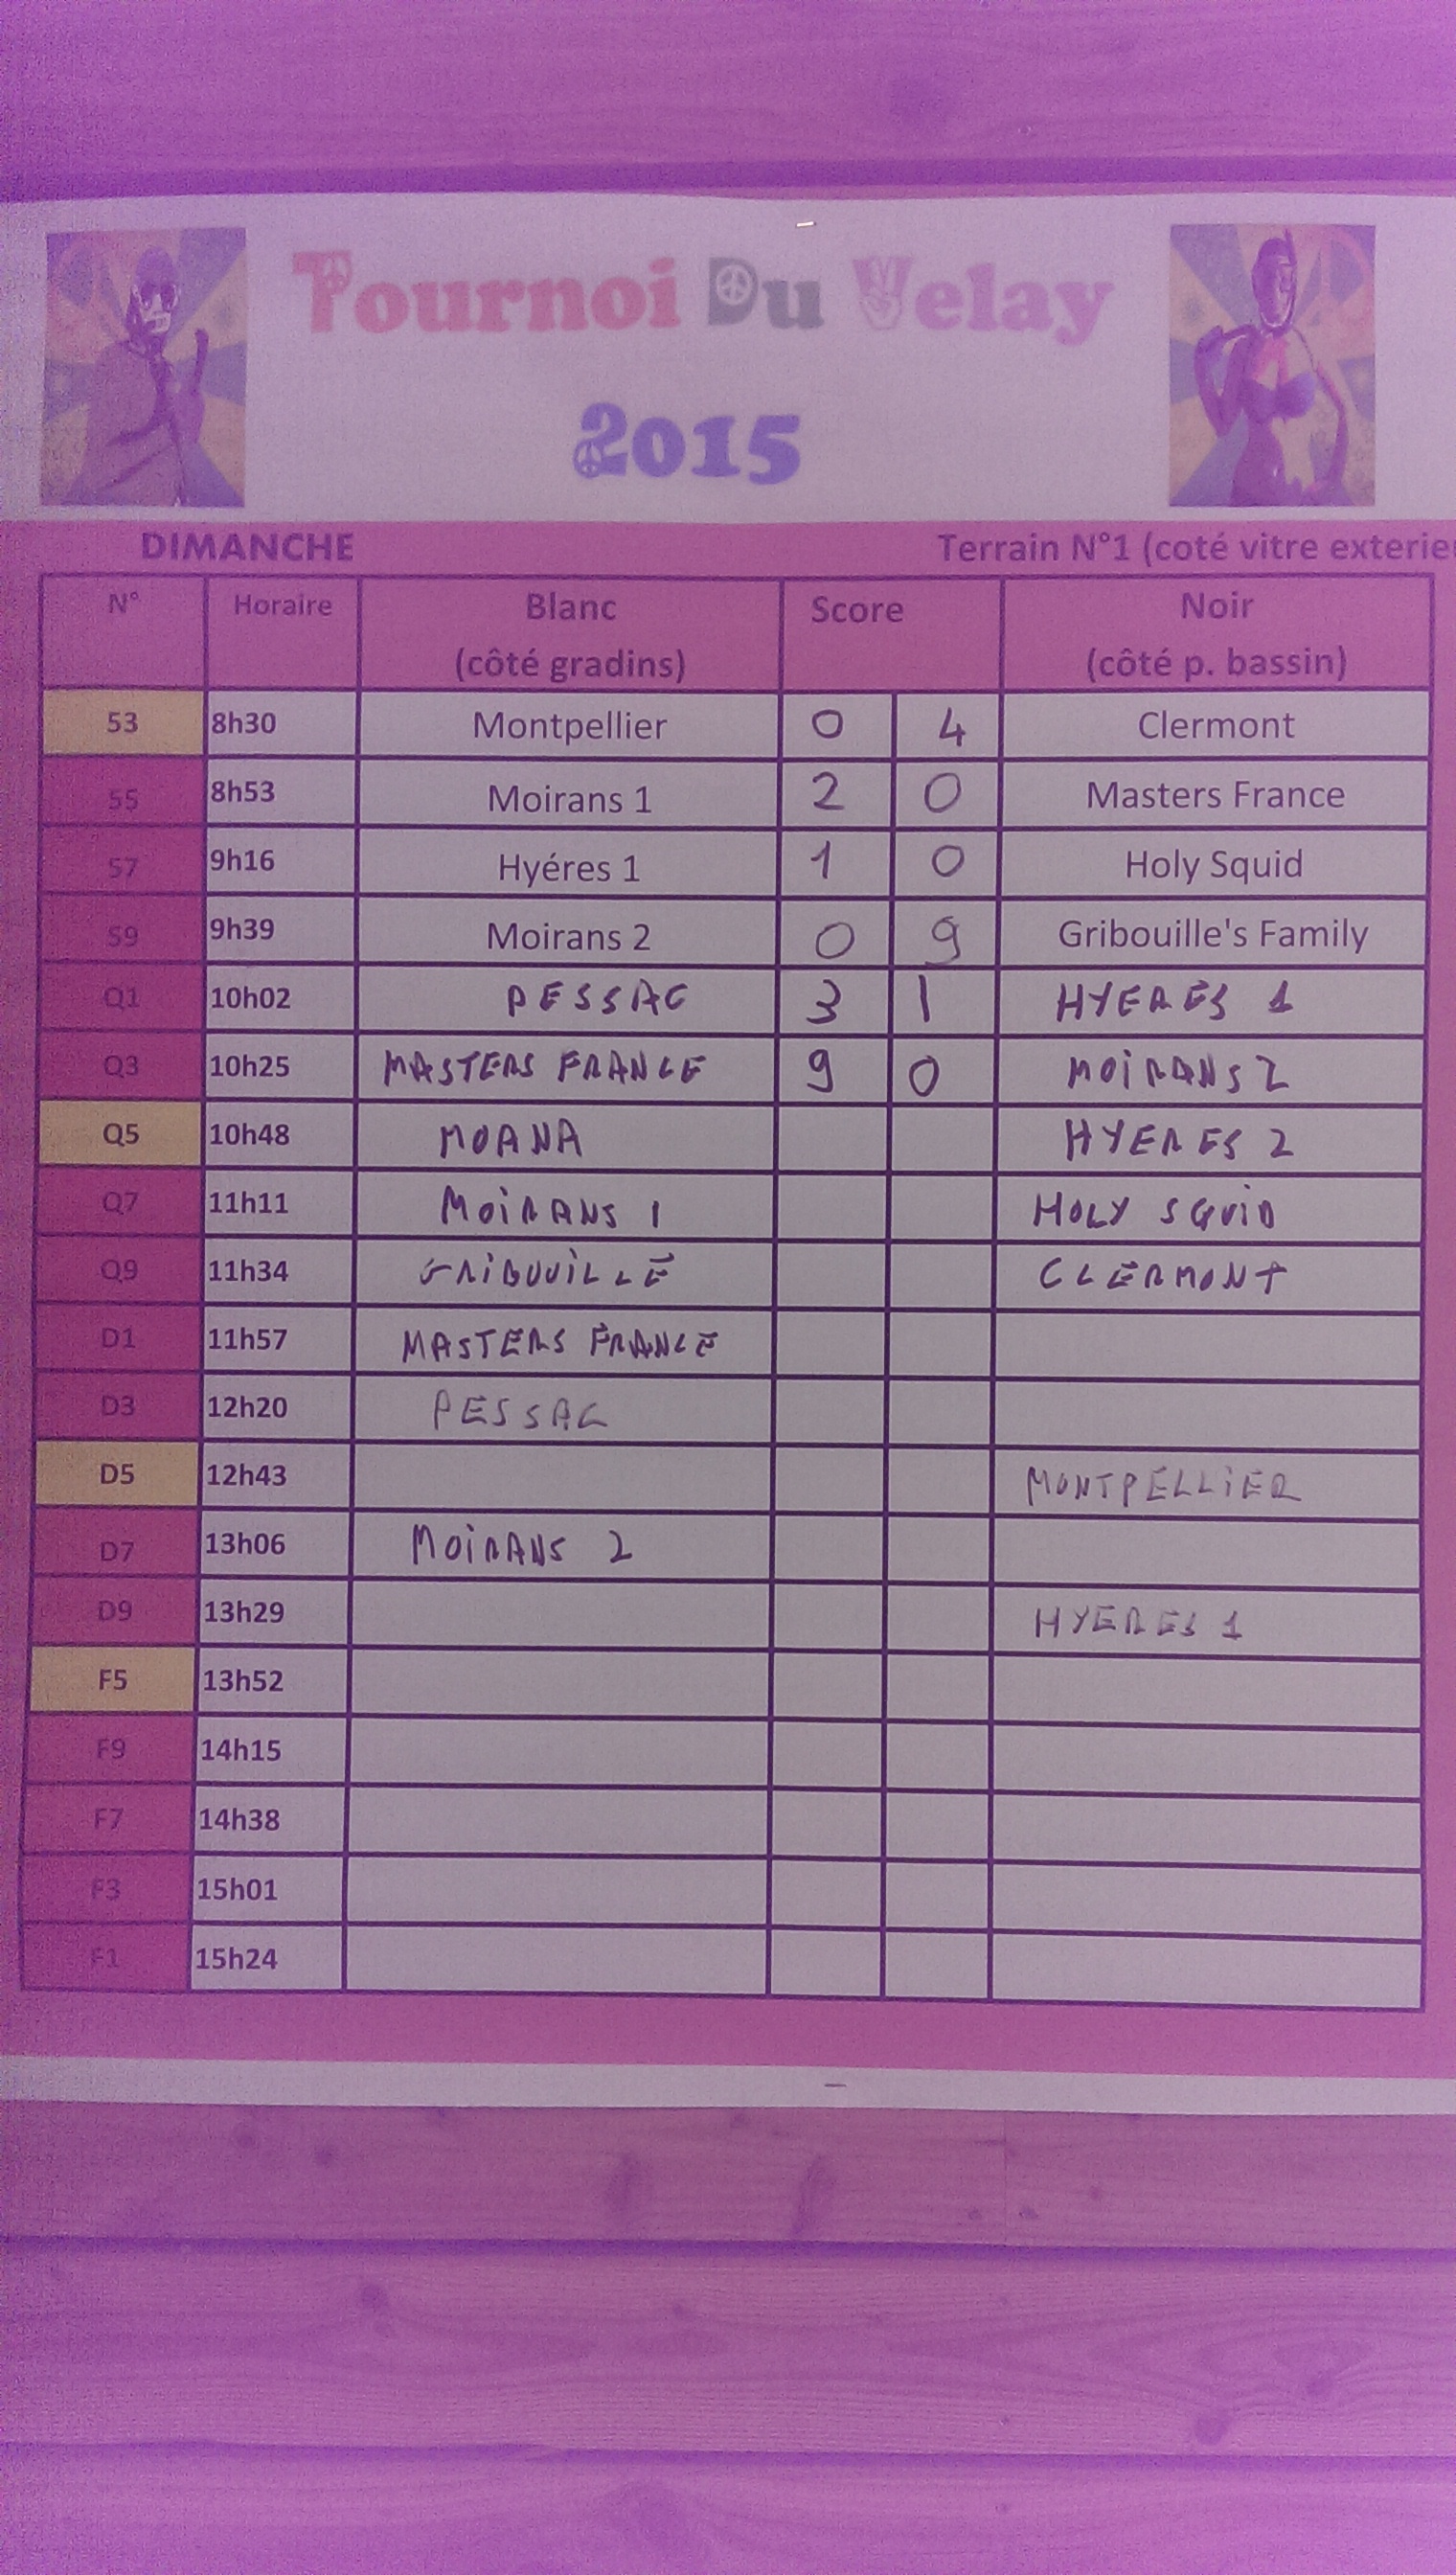 Tournoi Du Velay
2015
DIMANCHE Terrain N°1 (coté vitre exterie
N° Horaire Blanc Score Noir
(côté gradins) (côté p. bassin)
53 8h30 Montpellier 0 4 Clermont
55 8h53 Moirans 1 2 0 Masters France
57 9h16 Hyéres 1 1 0 Holy Squid
59 9h39 Moirans 2 0 9 Gribouille's Family
Q1 10h02 PESSAC 3 1 HYERES 1
Q3 10h25 MASTERS FRANCE 9 0 MOiRANS 2
Q5 10h48 MOANA HYERES 2
Q7 11h11 MOiRANS 1 HOLY SQUID
Q9 11h34 GRiBOUiLLE CLERMONT
D1 11h57 MASTERS FRANCE
D3 12h20 PESSAC
D5 12h43 MONTPELLiER
D7 13h06 MOiRANS 2
D9 13h29 HYERES 1
F5 13h52
F9 14h15
F7 14h38
F3 15h01
F1 15h24